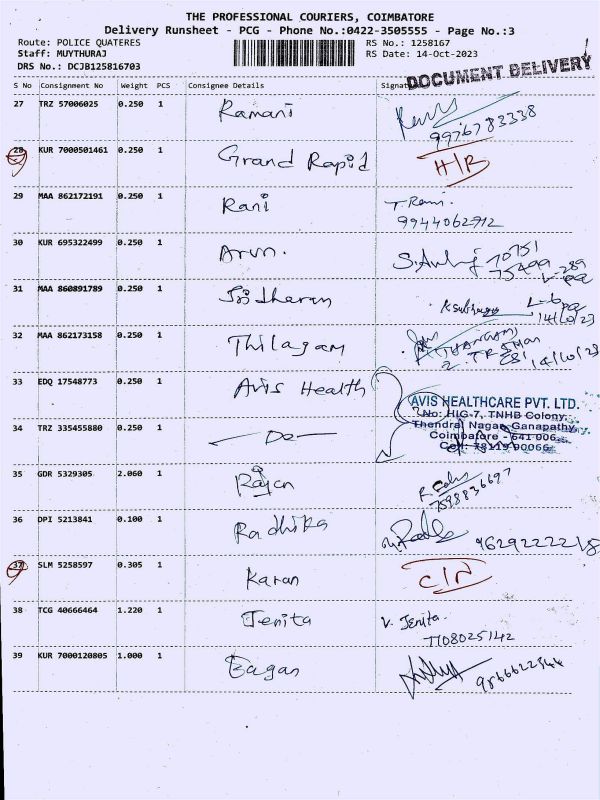 THE PROFESSIONAL COURIERS, COIMBATORE
Delivery Runsheet - PCG - Phone No.:0422-3505555 - Page No.:3
Route: POLICE QUATERES RS No.: 1258167
Staff: MUYTHURAJ RS Date: 14-Oct-2023
DRS No.: DCJB125816703
DOCUMENT DELIVERY
S No Consignment No Weight PCS Consignee Details Signat
27 TRZ 57006025 0.250 1 Ramani
9976783338
28 KUR 7000501461 0.250 1 Grand Rapid H/R
29 MAA 862172191 0.250 1 Rani T. Rani
9944062712
30 KUR 695322499 0.250 1 Arun.
31 MAA 860891789 0.250 1 Sridharan
14/10/23
32 MAA 862173158 0.250 1 Thilagam
14/10/23
33 EDQ 17548773 0.250 1 Avis Health
AVIS HEALTHCARE PVT. LTD.
No: HIG-7, TNHB Colony,
Thendral Nagar, Ganapathy,
Coimbatore - 641 006.
Cell: 78119 90066
34 TRZ 335455880 0.250 1 - Do -
35 GDR 5329305 2.060 1 Rajan
7598836697
36 DPI 5213841 0.100 1 Radhika
37 SLM 5258597 0.305 1 Karan C/N
38 TCG 40666464 1.220 1 Jenita V. Jenita
7708025142
39 KUR 7000120805 1.000 1 Eagan